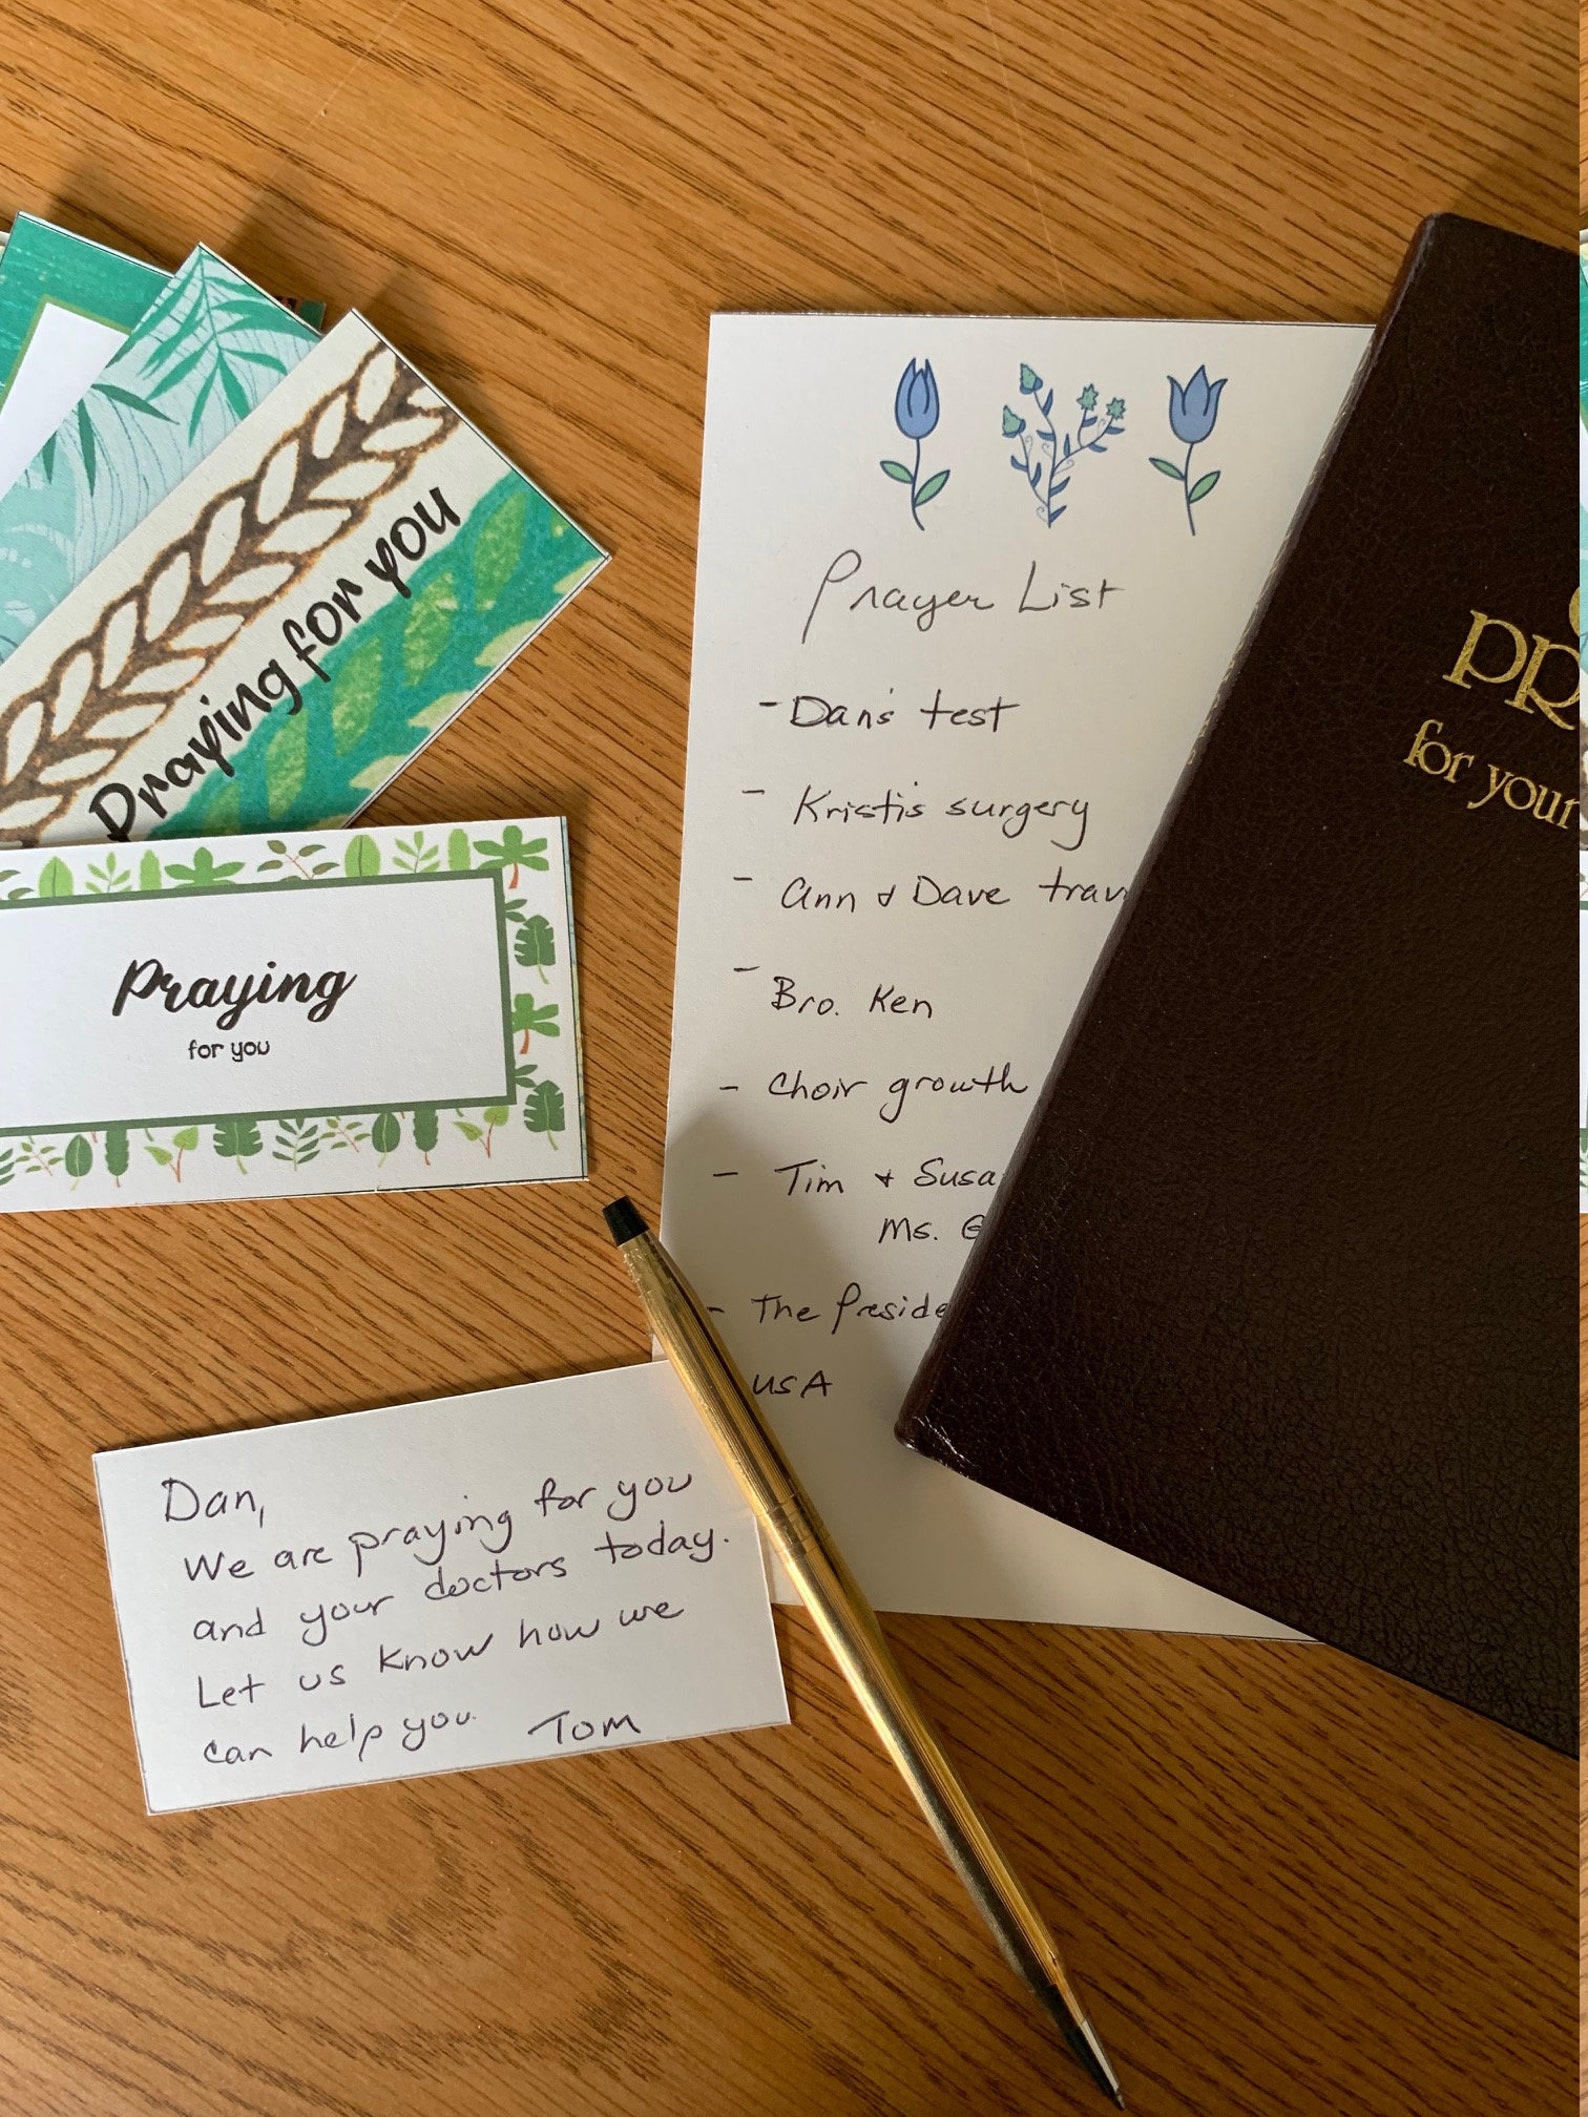 Praying for you
Praying
for you
Prayer List
- Dan's test
- Kristi's surgery
- Ann & Dave
- Bro. Ken
- Choir growth
- Tim &
Ms.
- The
USA
for your
Dan,
We are praying for you
and your doctors today.
Let us know how we
can help you. Tom